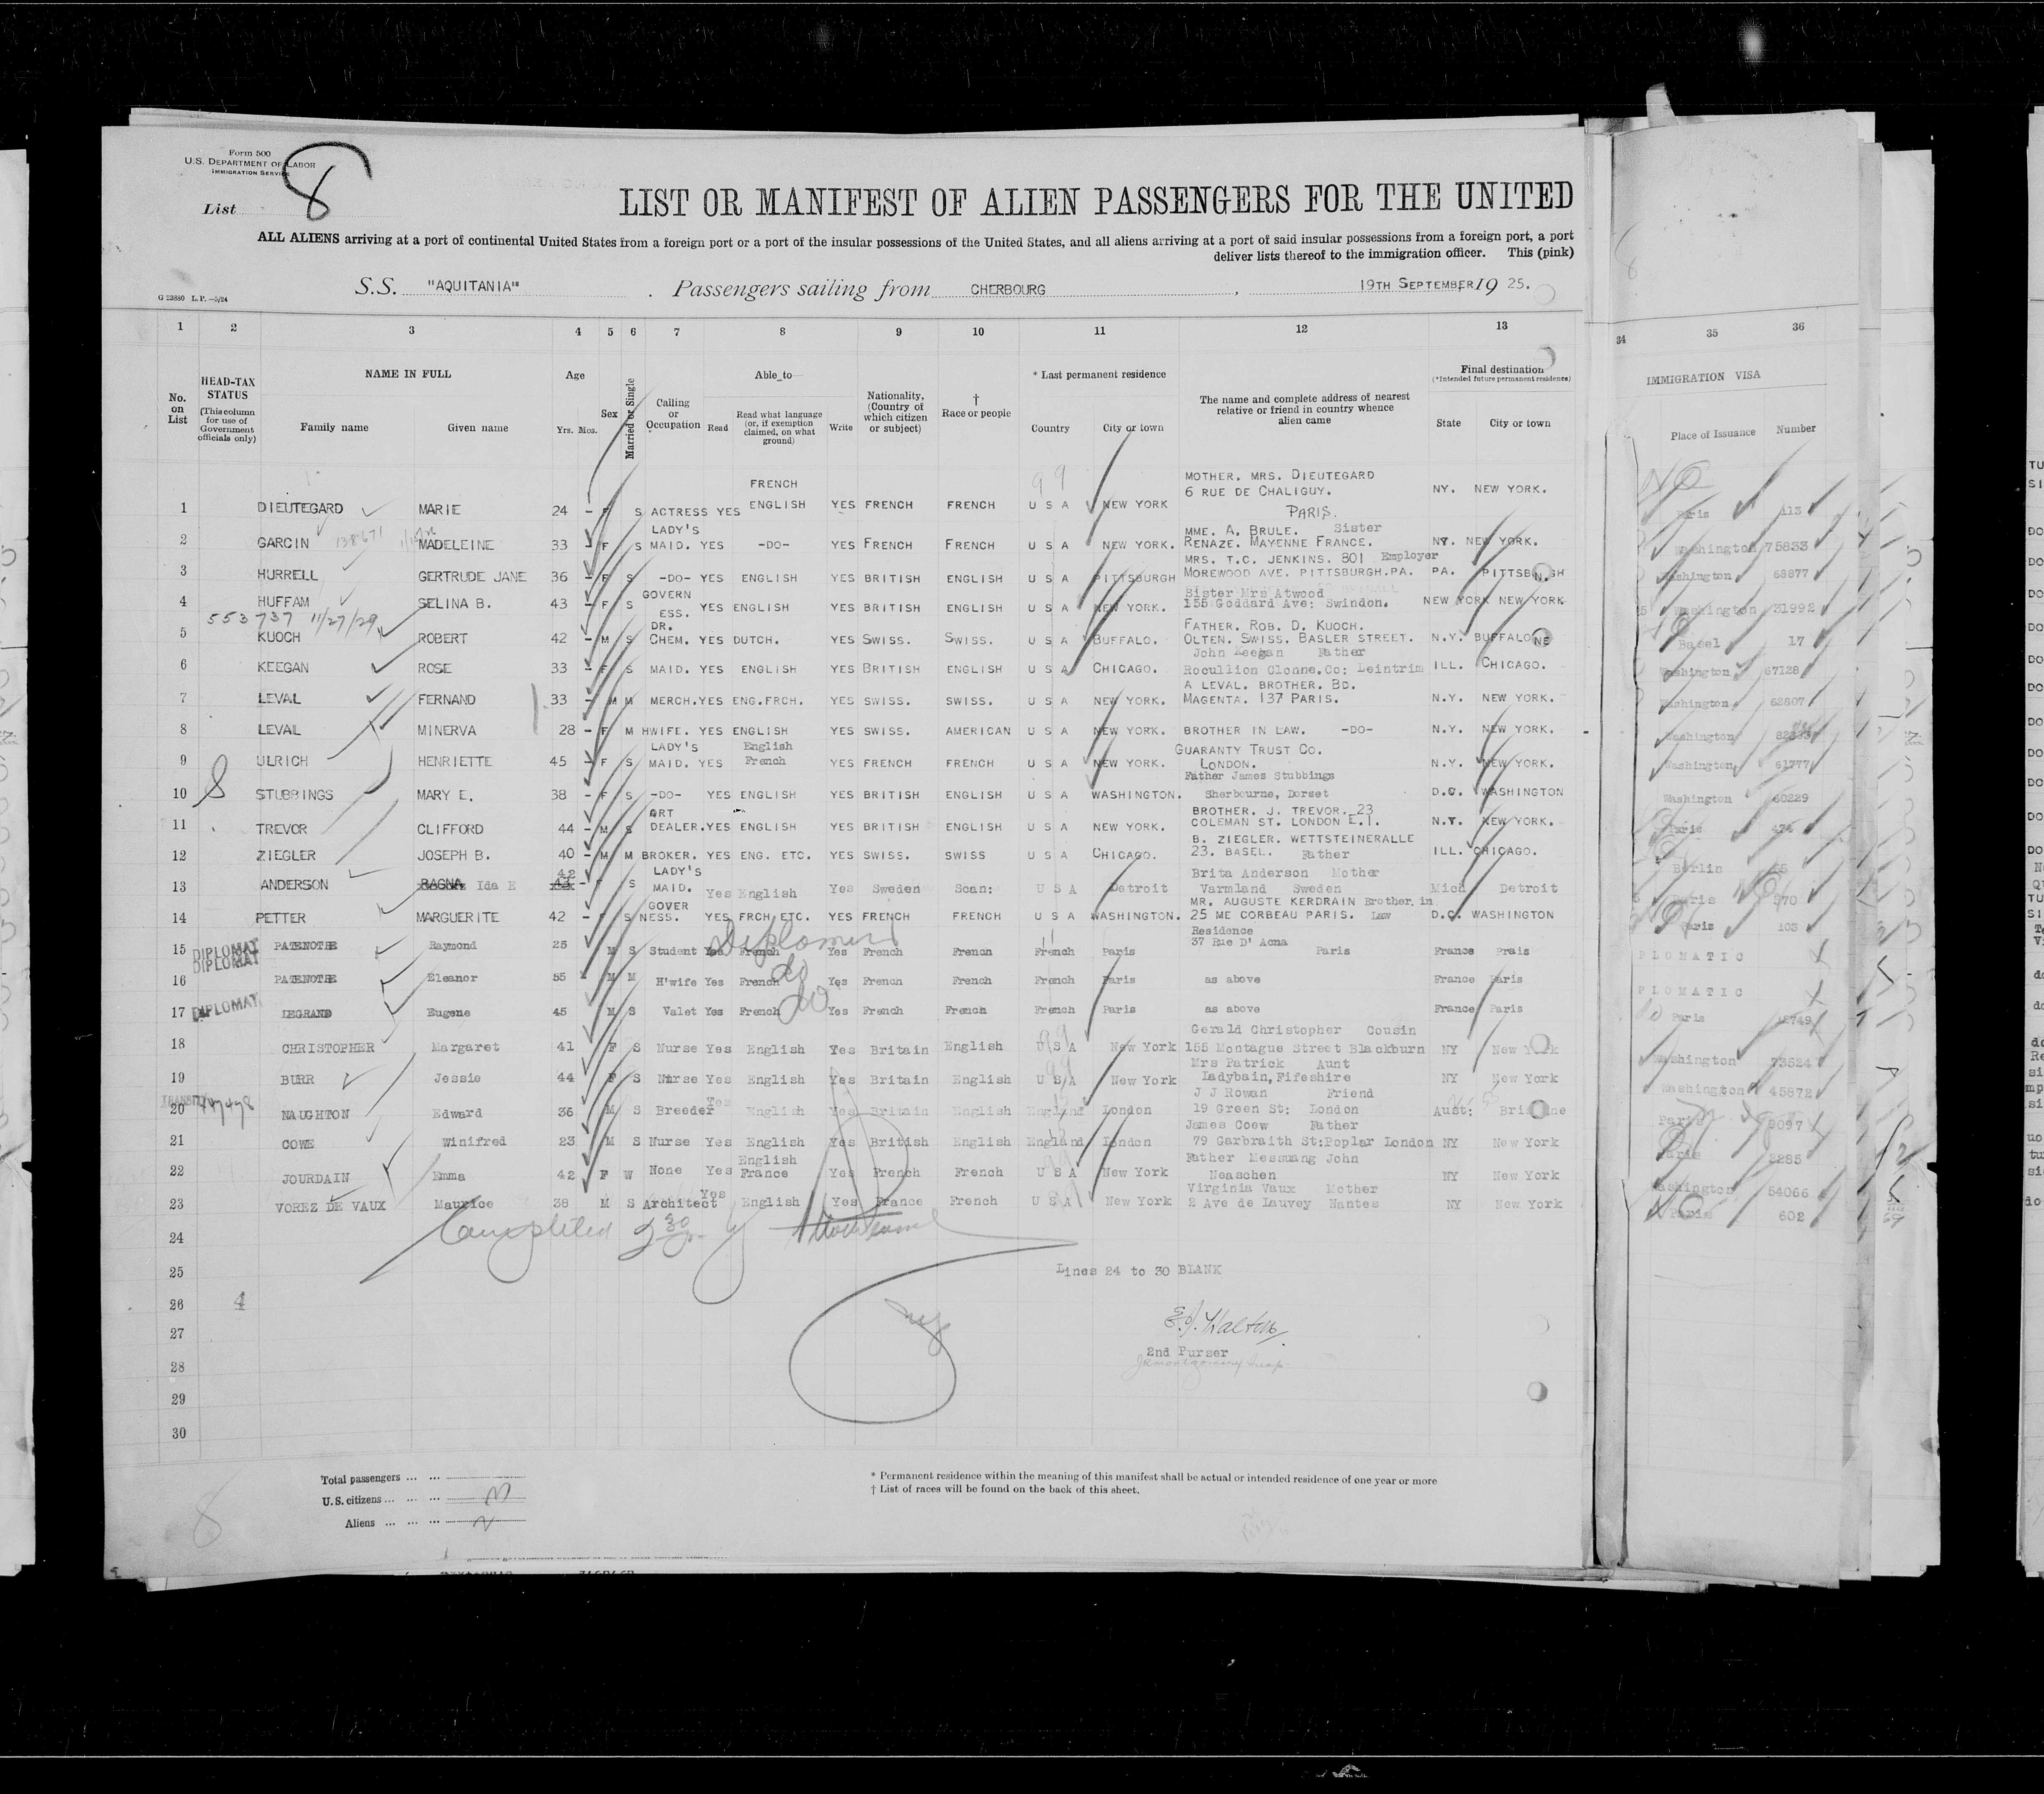 Form 500
U.S. DEPARTMENT OF LABOR
IMMIGRATION SERVICE
List 8
LIST OR MANIFEST OF ALIEN PASSENGERS FOR THE UNITED
ALL ALIENS arriving at a port of continental United States from a foreign port or a port of the insular possessions of the United States, and all aliens arriving at a port of said insular possessions from a foreign port, a port
deliver lists thereof to the immigration officer. This (pink)
G 23880 L.P.—5/24
S.S. "AQUITANIA" . Passengers sailing from CHERBOURG , 19TH SEPTEMBER 19 25.
1 2 3 4 5 6 7 8 9 10 11 12 13 34 35 36
No. on List
HEAD-TAX STATUS (This column for use of Government officials only)
NAME IN FULL
Family name Given name
Age
Yrs. Mos.
Sex
Married or Single
Calling or Occupation
Able to
Read
Read what language (or, if exemption claimed, on what ground)
Write
Nationality, (Country of which citizen or subject)
† Race or people
* Last permanent residence
Country City or town
The name and complete address of nearest relative or friend in country whence alien came
Final destination
(*Intended future permanent residence)
State City or town
IMMIGRATION VISA
Place of Issuance Number
FRENCH MOTHER. MRS. DIEUTEGARD
6 RUE DE CHALIGUY.
1 DIEUTEGARD MARIE 24 - F S ACTRESS YES ENGLISH YES FRENCH FRENCH U S A NEW YORK PARIS. NY. NEW YORK. Paris 113
LADY'S MME. A. BRULE. Sister
2 GARCIN 138671 MADELEINE 33 - F S MAID. YES -DO- YES FRENCH FRENCH U S A NEW YORK. RENAZE. MAYENNE FRANCE. NY. NEW YORK. Washington 75833
MRS. T.C. JENKINS. 801 Employer
3 HURRELL GERTRUDE JANE 36 - F S -DO- YES ENGLISH YES BRITISH ENGLISH U S A PITTSBURGH MOREWOOD AVE. PITTSBURGH.PA. PA. PITTSBURGH Washington 68877
GOVERN Sister Mrs Atwood
4 HUFFAM SELINA B. 43 - F S ESS. YES ENGLISH YES BRITISH ENGLISH U S A NEW YORK. 155 Goddard Ave: Swindon. NEW YORK NEW YORK Washington 31992
553737 11/27/29
DR. FATHER. ROB. D. KUOCH.
5 KUOCH ROBERT 42 - M S CHEM. YES DUTCH. YES SWISS. SWISS. U S A BUFFALO. OLTEN. SWISS. BASLER STREET. N.Y. BUFFALO Basel 17
John Keegan Father
6 KEEGAN ROSE 33 - F S MAID. YES ENGLISH YES BRITISH ENGLISH U S A CHICAGO. Rocullion Clonne.Co: Leintrim ILL. CHICAGO. Washington 67128
A LEVAL. BROTHER. BD.
7 LEVAL FERNAND 33 - M M MERCH. YES ENG.FRCH. YES SWISS. SWISS. U S A NEW YORK. MAGENTA. 137 PARIS. N.Y. NEW YORK. Washington 62607
8 LEVAL MINERVA 28 - F M HWIFE. YES ENGLISH YES SWISS. AMERICAN U S A NEW YORK. BROTHER IN LAW. -DO- N.Y. NEW YORK. Washington
LADY'S English GUARANTY TRUST CO.
9 ULRICH HENRIETTE 45 - F S MAID. YES French YES FRENCH FRENCH U S A NEW YORK. LONDON. N.Y. NEW YORK. Washington 61777
Father James Stubbings
10 STUBBINGS MARY E. 38 - F S -DO- YES ENGLISH YES BRITISH ENGLISH U S A WASHINGTON. Sherbourne, Dorset D.C. WASHINGTON Washington 60229
ART BROTHER. J. TREVOR. 23
11 TREVOR CLIFFORD 44 - M S DEALER. YES ENGLISH YES BRITISH ENGLISH U S A NEW YORK. COLEMAN ST. LONDON E.1. N.Y. NEW YORK. Paris 474
B. ZIEGLER. WETTSTEINERALLE
12 ZIEGLER JOSEPH B. 40 - M M BROKER. YES ENG. ETC. YES SWISS. SWISS U S A CHICAGO. 23. BASEL. Father ILL. CHICAGO. Berlin 65
42 LADY'S Brita Anderson Mother
13 ANDERSON RAGNA Ida E - F S MAID. Yes English Yes Sweden Scan: U S A Detroit Varmland Sweden Mich Detroit Paris 570
GOVER MR. AUGUSTE KERDRAIN Brother. in
14 PETTER MARGUERITE 42 - F S NESS. YES FRCH ETC. YES FRENCH FRENCH U S A WASHINGTON. 25 ME CORBEAU PARIS. Law D.C. WASHINGTON Paris 103
Residence
DIPLOMAT 37 Rue D' Acna
15 PATENOTRE Raymond 25 M S Student Yes French Yes French French French Paris Paris France Prais PLOMATIC
DIPLOMAT
16 PATENOTRE Eleanor 55 - M M H'wife Yes French do Yes French French French Paris as above France Paris PLOMATIC
17 DIPLOMAT LEGRAND Eugene 45 M S Valet Yes French do Yes French French French Paris as above France Paris Paris 12749
Gerald Christopher Cousin
18 CHRISTOPHER Margaret 41 F S Nurse Yes English Yes Britain English U S A New York 155 Montague Street Blackburn NY New York Washington 73524
Mrs Patrick Aunt
19 BURR Jessie 44 F S Nurse Yes English Yes Britain English U S A New York Ladybain, Fifeshire NY New York Washington 45872
TRANSIT J J Rowan Friend
20 NAUGHTON Edward 36 M S Breeder Yes English Yes Britain English England London 19 Green St: London Aust: Paris 9097
James Coew Father
21 COWE Winifred 23 M S Nurse Yes English Yes British English England London 79 Garbraith St:Poplar London NY New York Paris 2285
English Father Messuang John
22 JOURDAIN Emma 42 F W None Yes France Yes French French U S A New York Neaschen NY New York Washington 54066
Virginia Vaux Mother
23 VOREZ DE VAUX Maurice 38 M S Architect Yes English Yes France French U S A New York 2 Ave de Lauvey Nantes NY New York Paris 602
24 Completed
25 Lines 24 to 30 BLANK
26 4
27 E.J. Walton
2nd Purser
28
29
30
Total passengers ... ...
U.S. citizens ... ... ...
Aliens ... ... ...
8
* Permanent residence within the meaning of this manifest shall be actual or intended residence of one year or more
† List of races will be found on the back of this sheet.